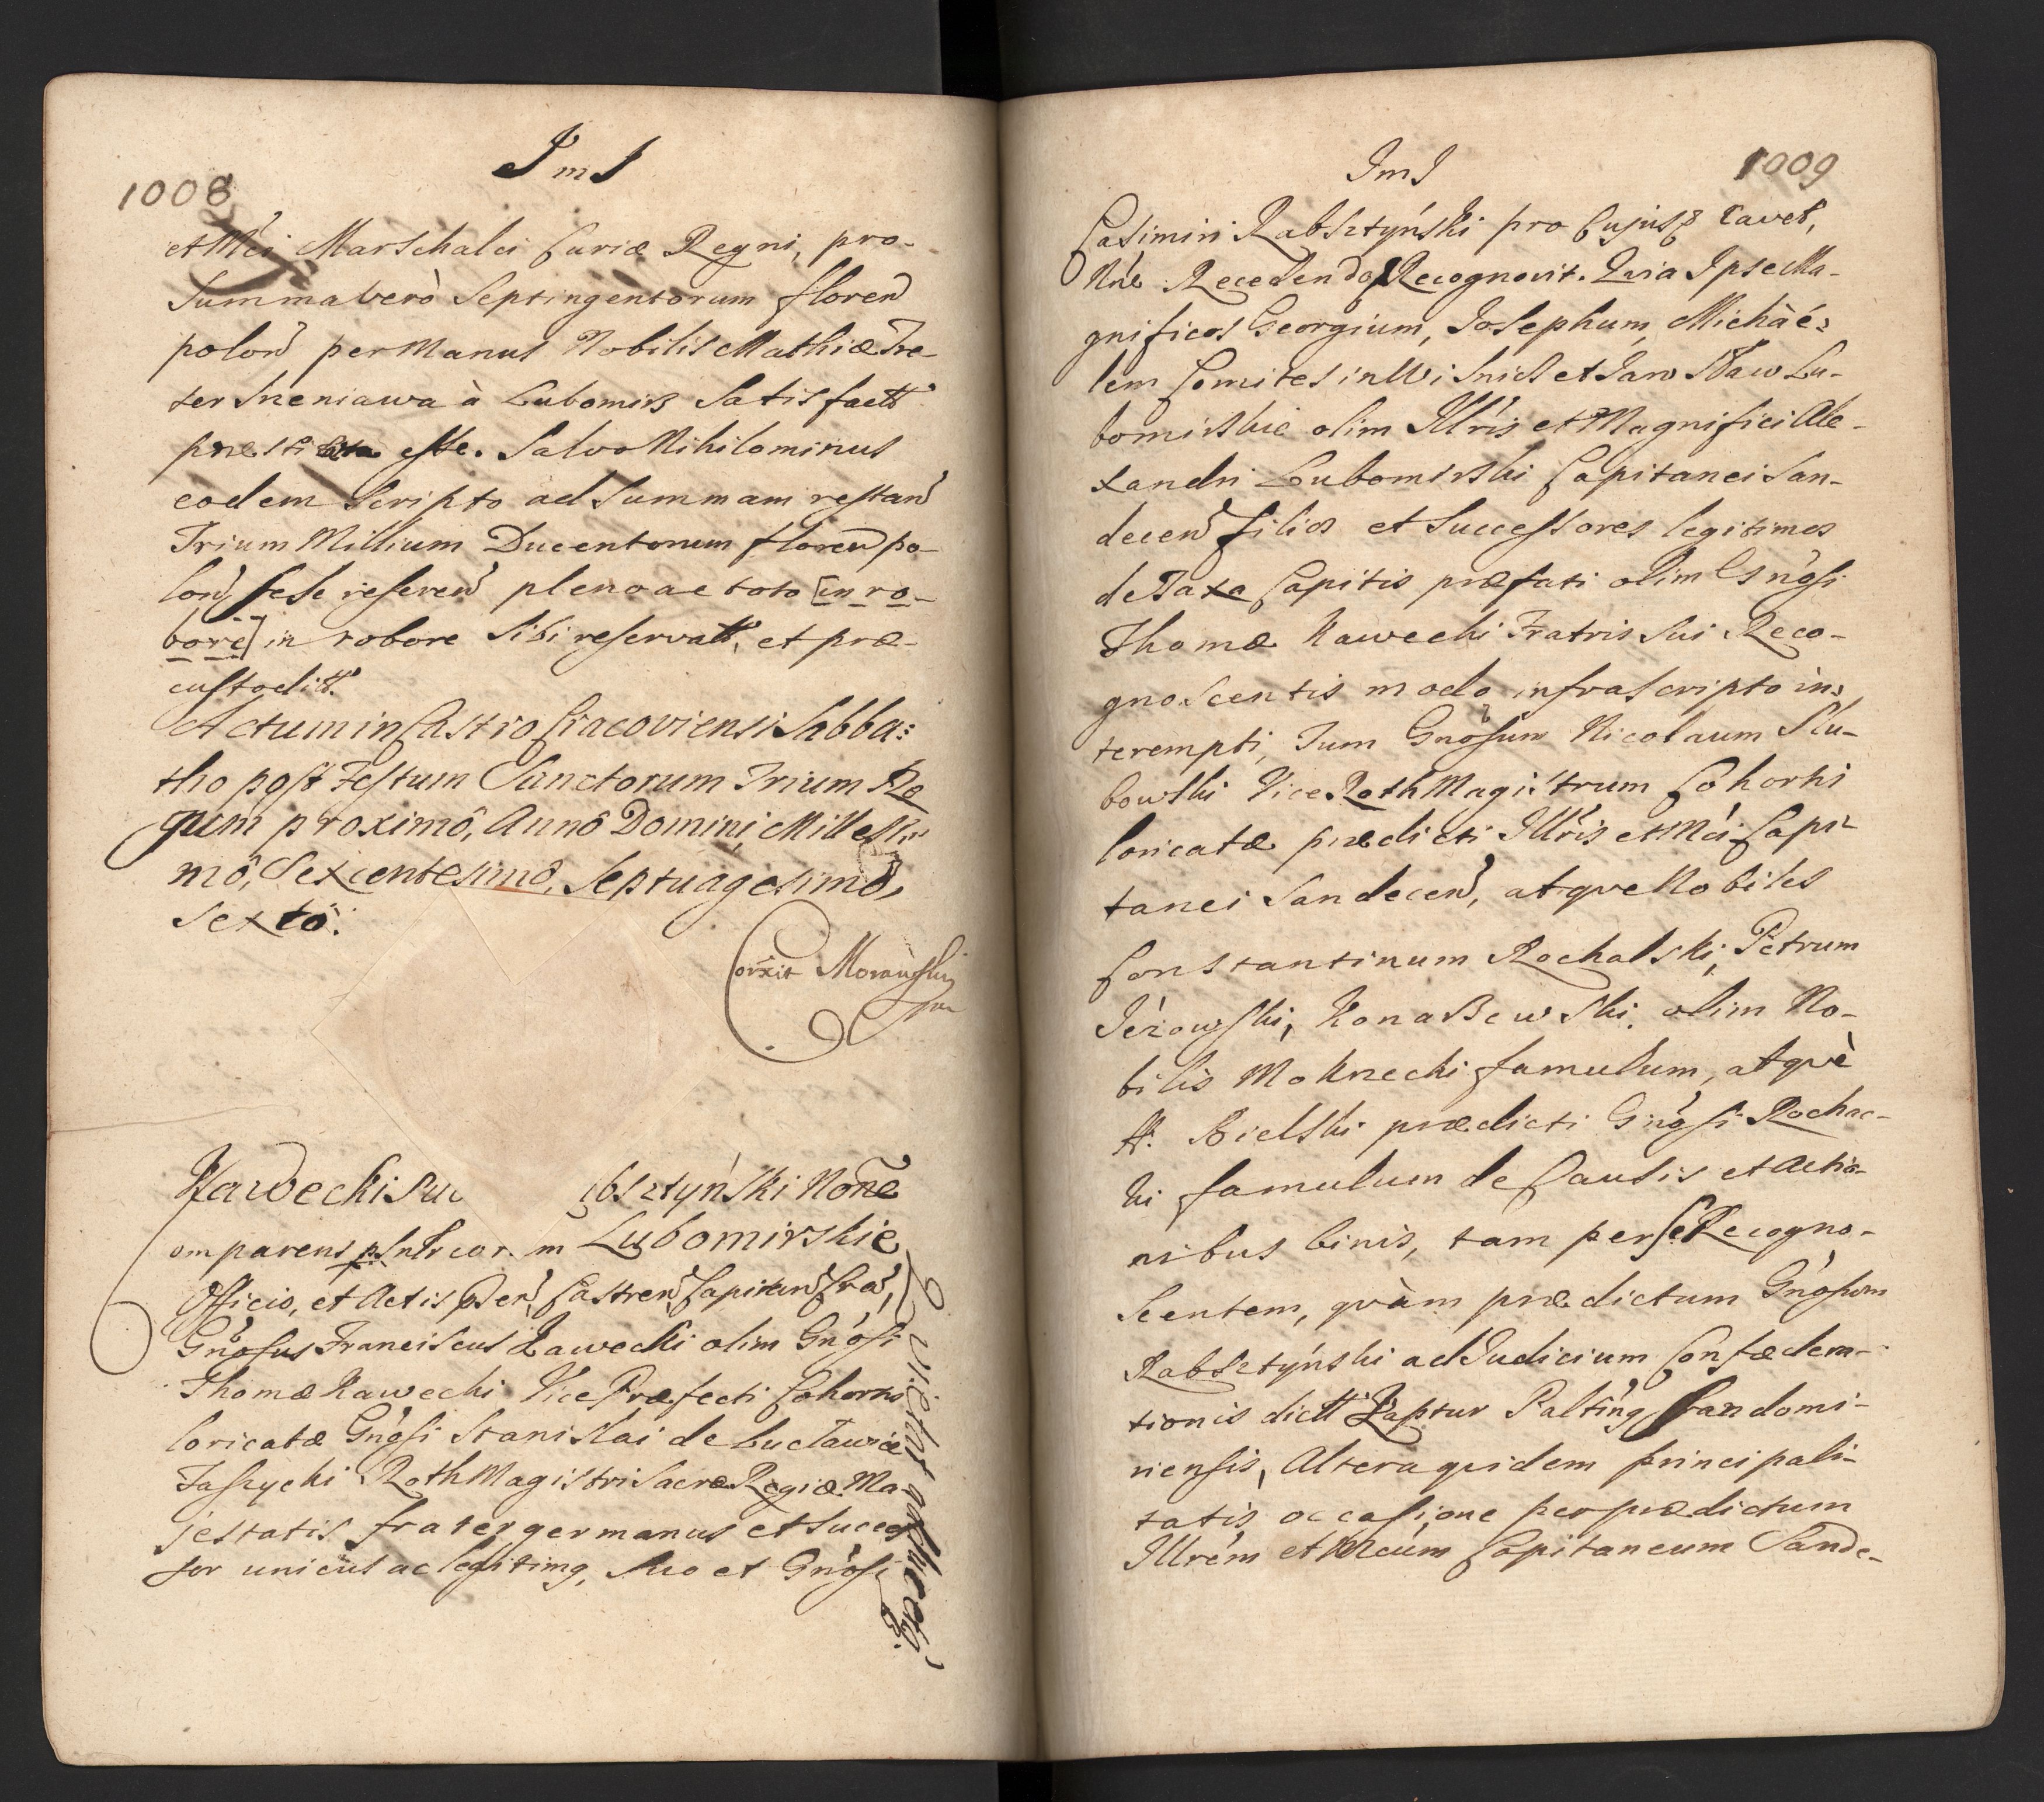 1008
ImI
et Mci Marschalci Curiæ Regni, pro-
Summa verò Septingentorum floren
polon per Manus Nobilis Mathiæ Tre-
ter Sneniawa à Lubomirs Satis factt
præstita esse. Salvo Nihilominus
eodem Scripto ad Summam restan
Trium Millium Ducentorum floren po-
lon sese referen pleno ac toto [in ro-
bore] in robore Sibi reservatt, et præ-
custoditt.
Actum in Castro Cracoviensi Sabba:
tho post Festum Sanctorum Trium Re
gum proximô, Annô Domini, Milless:
mô, Sexcentesimô, Septuagesimô,
Sextô.
Corxit Morawski
mp
Kawecki Su bsztyński Noñe
omparens psnlr cor. m Lubomirskie
Officio, et Actis Psen, Castren, Capitan Cra,
Gnosus Franciscus Kawecki olim Gnosi
Thomæ Kawecki Vice Præfecti Cohortis
loricatæ Gnosi Stanislai de Luctawice
Taszycki RothMagistri Sacræ Regiæ Ma-
jestatis frater germanus et Succes
sor unicus ac legitimg, suo et Gnosi
Quietat
1009
ImI
Casimiri Rabsztyński pro Cujusq cavet,
Nne Recedendo Recognovit. Quia Ipse Ma-
gnificos Georgium, Josephum, Michàé:
lem Comites in Wisnicz et Jaro Slaw Lu-
bomirskie olim Illris et Magnifici Ale-
xandri Lubomirski Capitanei San-
decen filios et Successores legitimos
de Taxa Capitis præfati olim Gsnosi
Thomæ Kawecki Fratris Sui Reco-
gnoscentis modo infrascripto in:
terempti, Tum Gnosum Nicolaum Slu-
bowski Vice RothMagistrum Cohortis
loricatæ prædicti Illris et Mci Capi-
tanei Sandecen, atque Nobiles
Constantinum Rochalski, Petrum
Jéżowski, Konaszewski. olim No-
bilis Mokrzecki famulum, atquè
N. Bielski prædicti Gnosi Rochac-
ki famulum de Causis et Actio-
nibus binis, tam per se Recogno-
Scentem, quàm prædictum Gnosum
Rabsztyński ad Judicium Confædera-
tionis dictt Kaptur Palting Sandomi-
riensis, Altera quidem principali-
tatis occasione per prædictum
Illrém et Mcúm Capitaneum Sande-